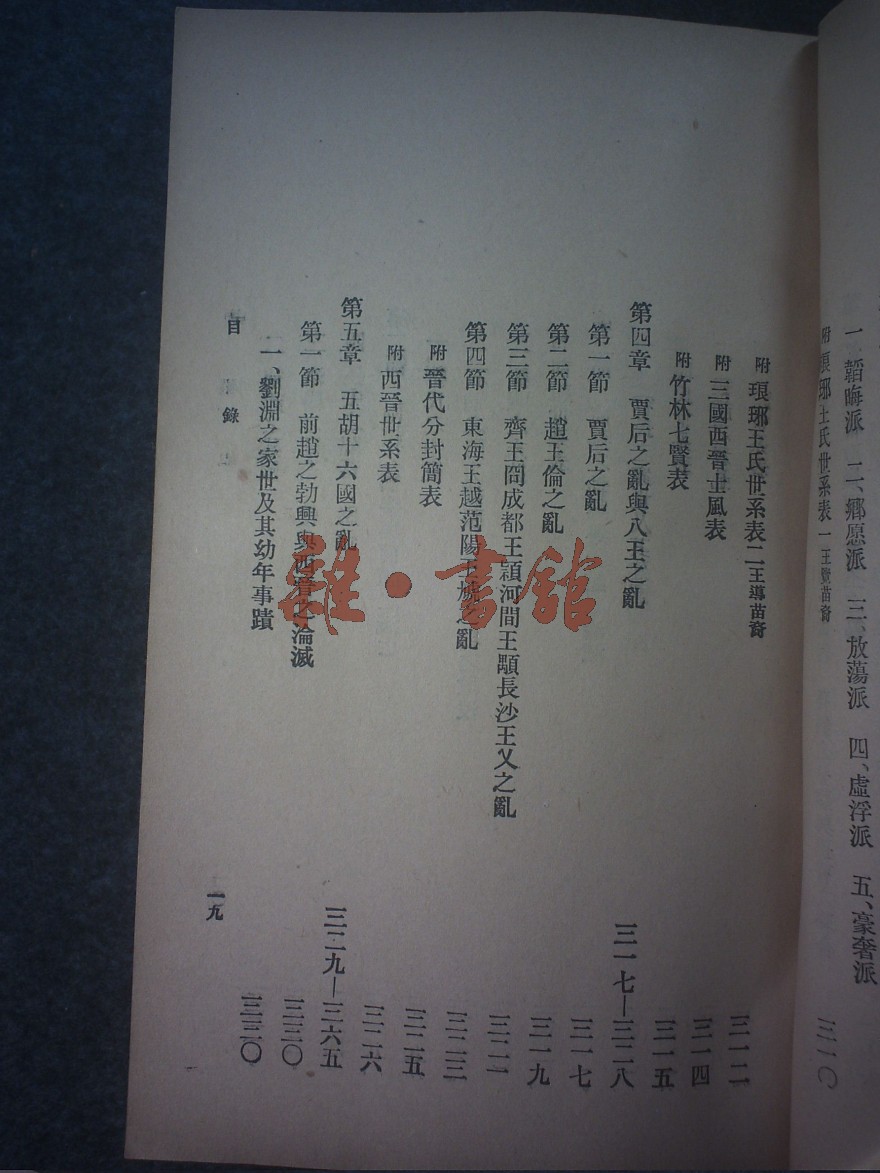 一、韜晦派　二、鄉愿派　三、放蕩派　四、虛浮派　五、豪奢派
附 琅琊王氏世系表一王覽苗裔　三一〇
附 琅琊王氏世系表二王導苗裔　三一二
附 三國西晉士風表　三一四
附 竹林七賢表　三一五
第四章　賈后之亂與八王之亂　三一七—三二八
第一節　賈后之亂　三一七
第二節　趙王倫之亂　三一九
第三節　齊王冏成都王穎河間王顒長沙王乂之亂　三二一
第四節　東海王越范陽王虓之亂　三二三
附 晉代分封簡表　三二五
附 西晉世系表　三二六
第五章　五胡十六國之亂　三二九—三六五
第一節　前趙之勃興與西晉之淪滅　三三〇
一、劉淵之家世及其幼年事蹟　三三〇
目錄
一九
雜·書館